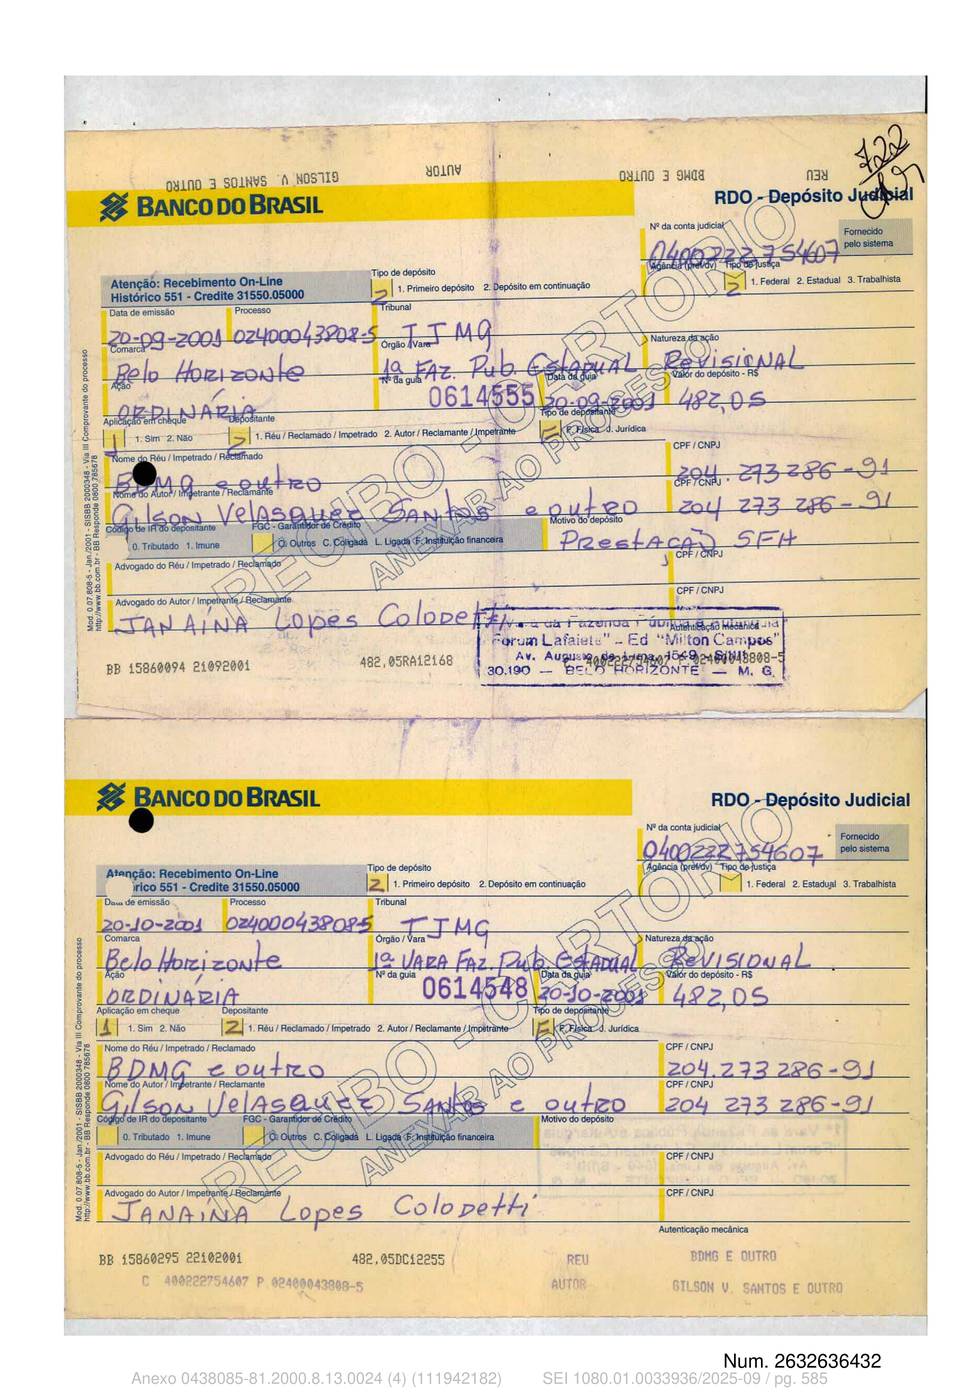 722
GILSON V. SANTOS E OUTRO AUTOR BDMG E OUTRO REU
BANCO DO BRASIL
RDO - Depósito Judicial
Nº da conta judicial
Fornecido
pelo sistema
0400222754607
Agência (pref/dv) Tipo de justiça
2 1. Federal 2. Estadual 3. Trabalhista
Atenção: Recebimento On-Line
Histórico 551 - Credite 31550.05000
Tipo de depósito
2 1. Primeiro depósito 2. Depósito em continuação
Data de emissão Processo Tribunal
20-09-2001 02400043808-5 TJMG
Comarca Órgão / Vara Natureza da ação
Belo Horizonte 1ª Faz. Pub. Estadual Revisional
Ação Nº da guia Data da guia Valor do depósito - R$
ORDINÁRIA 0614555 20-09-2001 482,05
Aplicação em cheque Depositante Tipo de depositante
1 1. Sim 2. Não 2 1. Réu / Reclamado / Impetrado 2. Autor / Reclamante / Impetrante F F. Física J. Jurídica
Nome do Réu / Impetrado / Reclamado CPF / CNPJ
BDMG e outro 204.273286-91
Nome do Autor / Impetrante / Reclamante CPF / CNPJ
Gilson Velasquez Santos e outro 204 273 286-91
Código de IR do depositante FGC - Garantidor de Crédito Motivo do depósito
0. Tributado 1. Imune O. Outros C. Coligada L. Ligada F. Instituição financeira Prestação SFH
Advogado do Réu / Impetrado / Reclamado CPF / CNPJ
Advogado do Autor / Impetrante / Reclamante CPF / CNPJ
JANAÍNA Lopes Colodetti
Autenticação mecânica
Vara da Fazenda Pública e Autarquia
Forum Lafaiete" - Ed "Milton Campos"
Av. Augusto de Lima, 1549 - S/III
30.190 — BELO HORIZONTE — M. G.
BB 15860094 21092001 482,05RA12168 400222754607 P 02400043808-5
RECIBO - CARTORIO
ANEXAR AO PROCESSO
Mod. 0.07.808-5 - Jan./2001 - SISBB 2000348 - Via III Comprovante do processo
http://www.bb.com.br - BB Responde 0800 785678
BANCO DO BRASIL
RDO - Depósito Judicial
Nº da conta judicial
Fornecido
pelo sistema
0400222754607
Agência (pref/dv) Tipo de justiça
1. Federal 2. Estadual 3. Trabalhista
Atenção: Recebimento On-Line
rico 551 - Credite 31550.05000
Tipo de depósito
2 1. Primeiro depósito 2. Depósito em continuação
Data de emissão Processo Tribunal
20-10-2001 024000438085 TJMG
Comarca Órgão / Vara Natureza da ação
Belo Horizonte 1ª VARA FAZ. Pub. ESTADUAL REVISIONAL
Ação Nº da guia Data da guia Valor do depósito - R$
ORDINÁRIA 0614548 20-10-2001 482,05
Aplicação em cheque Depositante Tipo de depositante
1 1. Sim 2. Não 2 1. Réu / Reclamado / Impetrado 2. Autor / Reclamante / Impetrante F F. Física J. Jurídica
Nome do Réu / Impetrado / Reclamado CPF / CNPJ
BDMG e outro 204.273 286-91
Nome do Autor / Impetrante / Reclamante CPF / CNPJ
Gilson Velasquez Santos e outro 204 273 286-91
Código de IR do depositante FGC - Garantidor de Crédito Motivo do depósito
0. Tributado 1. Imune O. Outros C. Coligada L. Ligada F. Instituição financeira
Advogado do Réu / Impetrado / Reclamado CPF / CNPJ
Advogado do Autor / Impetrante / Reclamante CPF / CNPJ
JANAÍNA Lopes Colodetti
Autenticação mecânica
BB 15860295 22102001 482,05DC12255 REU BDMG E OUTRO
C 400222754607 P 02400043808-5 AUTOR GILSON V. SANTOS E OUTRO
RECIBO - CARTORIO
ANEXAR AO PROCESSO
Mod. 0.07.808-5 - Jan./2001 - SISBB 2000348 - Via III Comprovante do processo
http://www.bb.com.br - BB Responde 0800 785678
Num. 2632636432
Anexo 0438085-81.2000.8.13.0024 (4) (111942182) SEI 1080.01.0033936/2025-09 / pg. 585